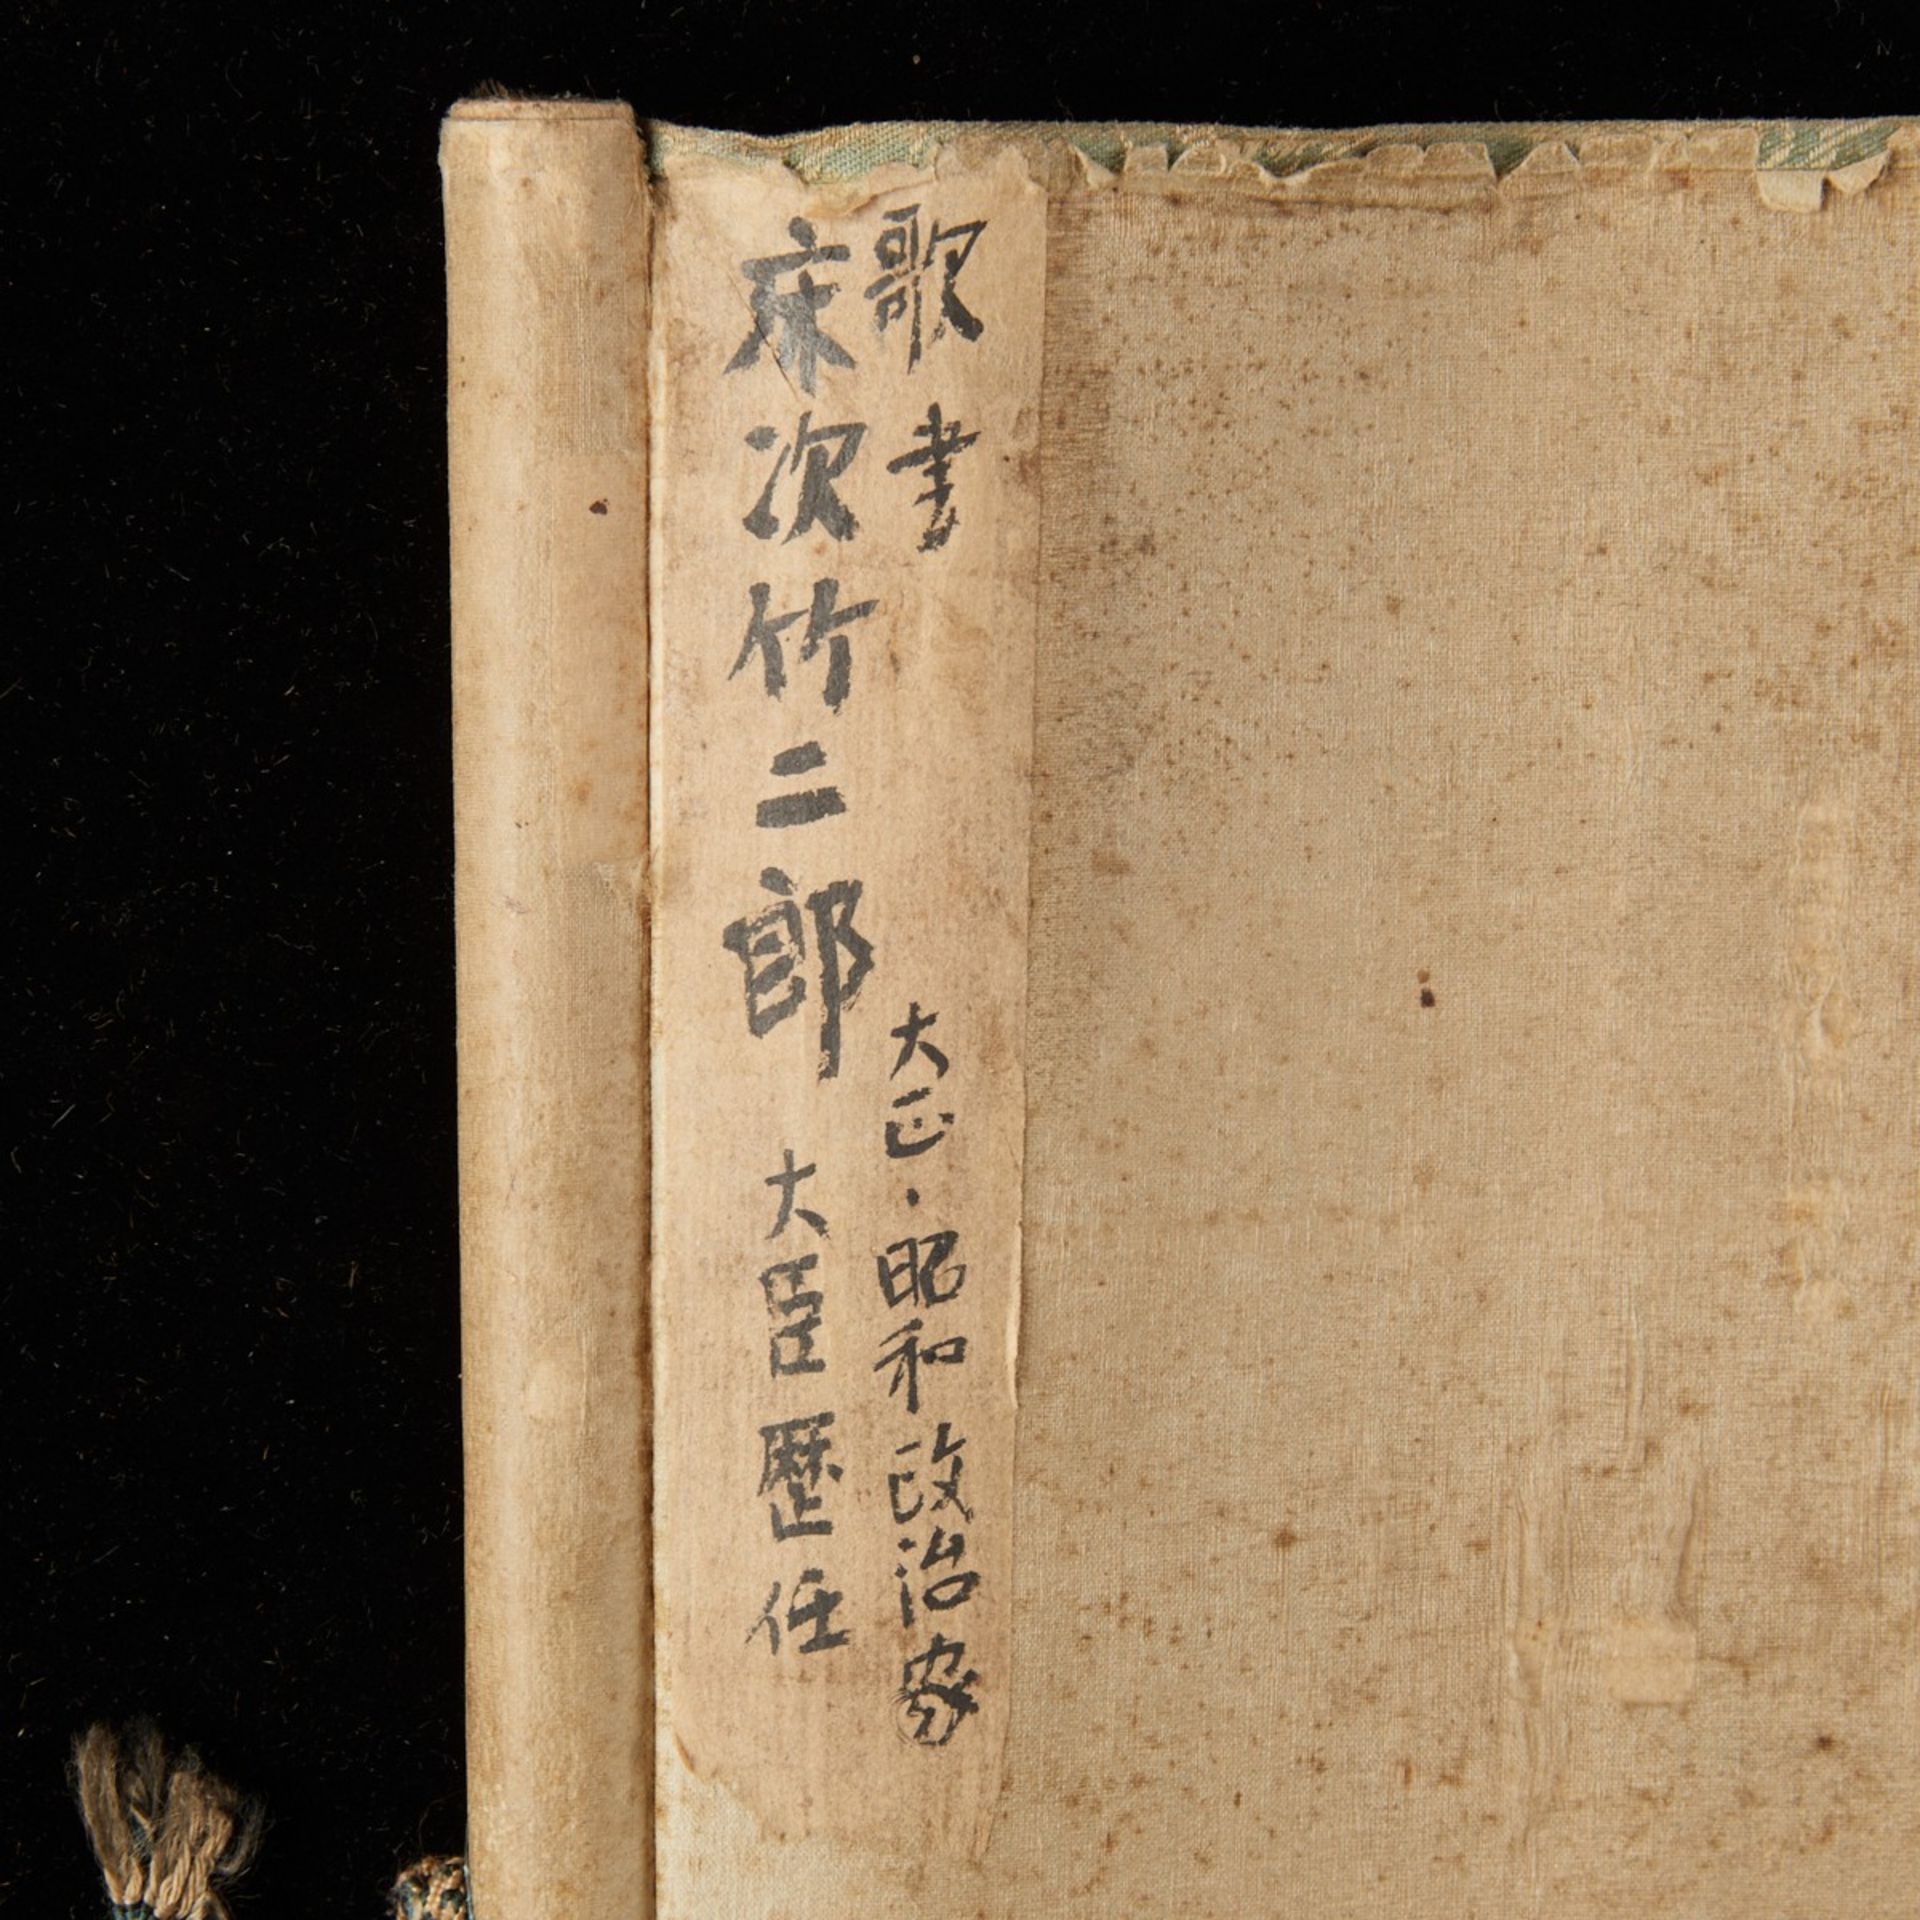 歌書
大正・昭和政治家
床次竹二郎
大臣歴任